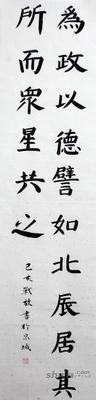 為政以德譬如北辰居其
所而眾星共之
己亥戰放書於京城